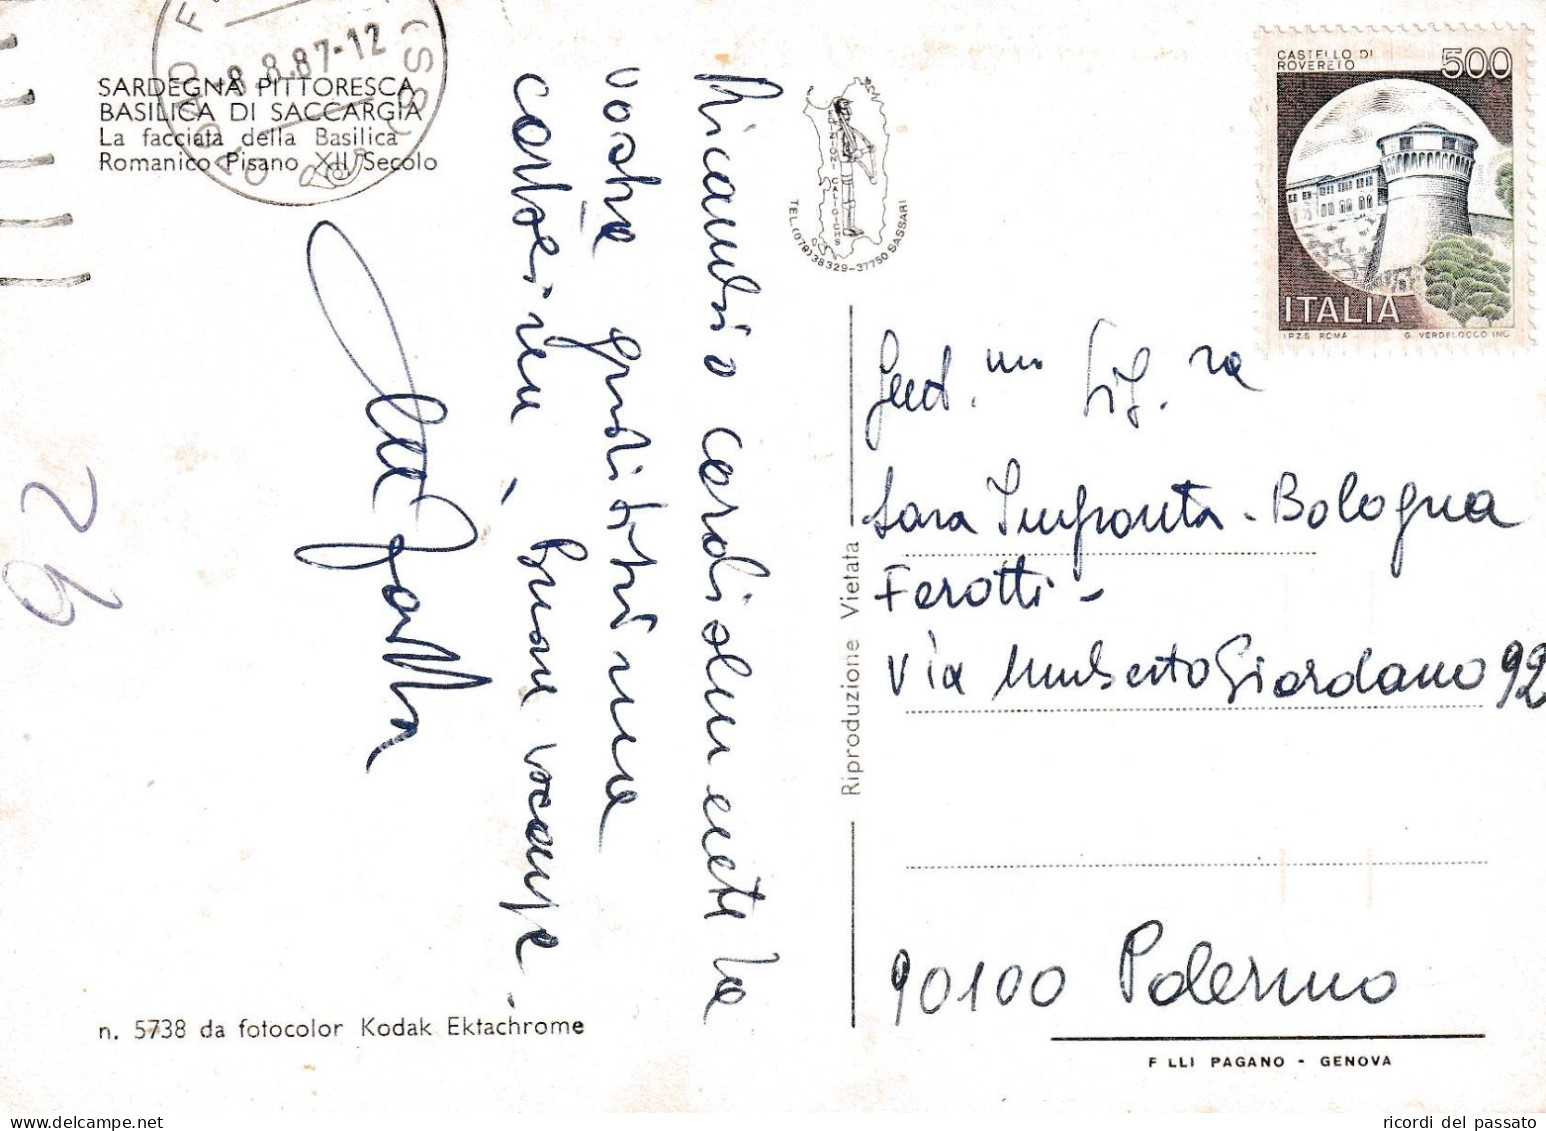 SARDEGNA PITTORESCA
BASILICA DI SACCARGIA
La facciata della Basilica
Romanico Pisano XII Secolo
8.8.87-12
(SS)
EDIZIONI CALIGICHS
TEL. (079) 38329-37750 SASSARI
CASTELLO DI
ROVERETO
500
ITALIA
I.P.Z.S. ROMA
G. VERDELOCCO INC.
Ricambio cordialmente la
vostra graditissima
cartolina, buone vacanze.
92
Gent.ma Sig.ra
Sara Impronta - Bologna
Ferotti -
Via Umberto Giordano 92
90100 Palermo
Riproduzione Vietata
n. 5738 da fotocolor Kodak Ektachrome
F LLI PAGANO - GENOVA
ricordi del passato